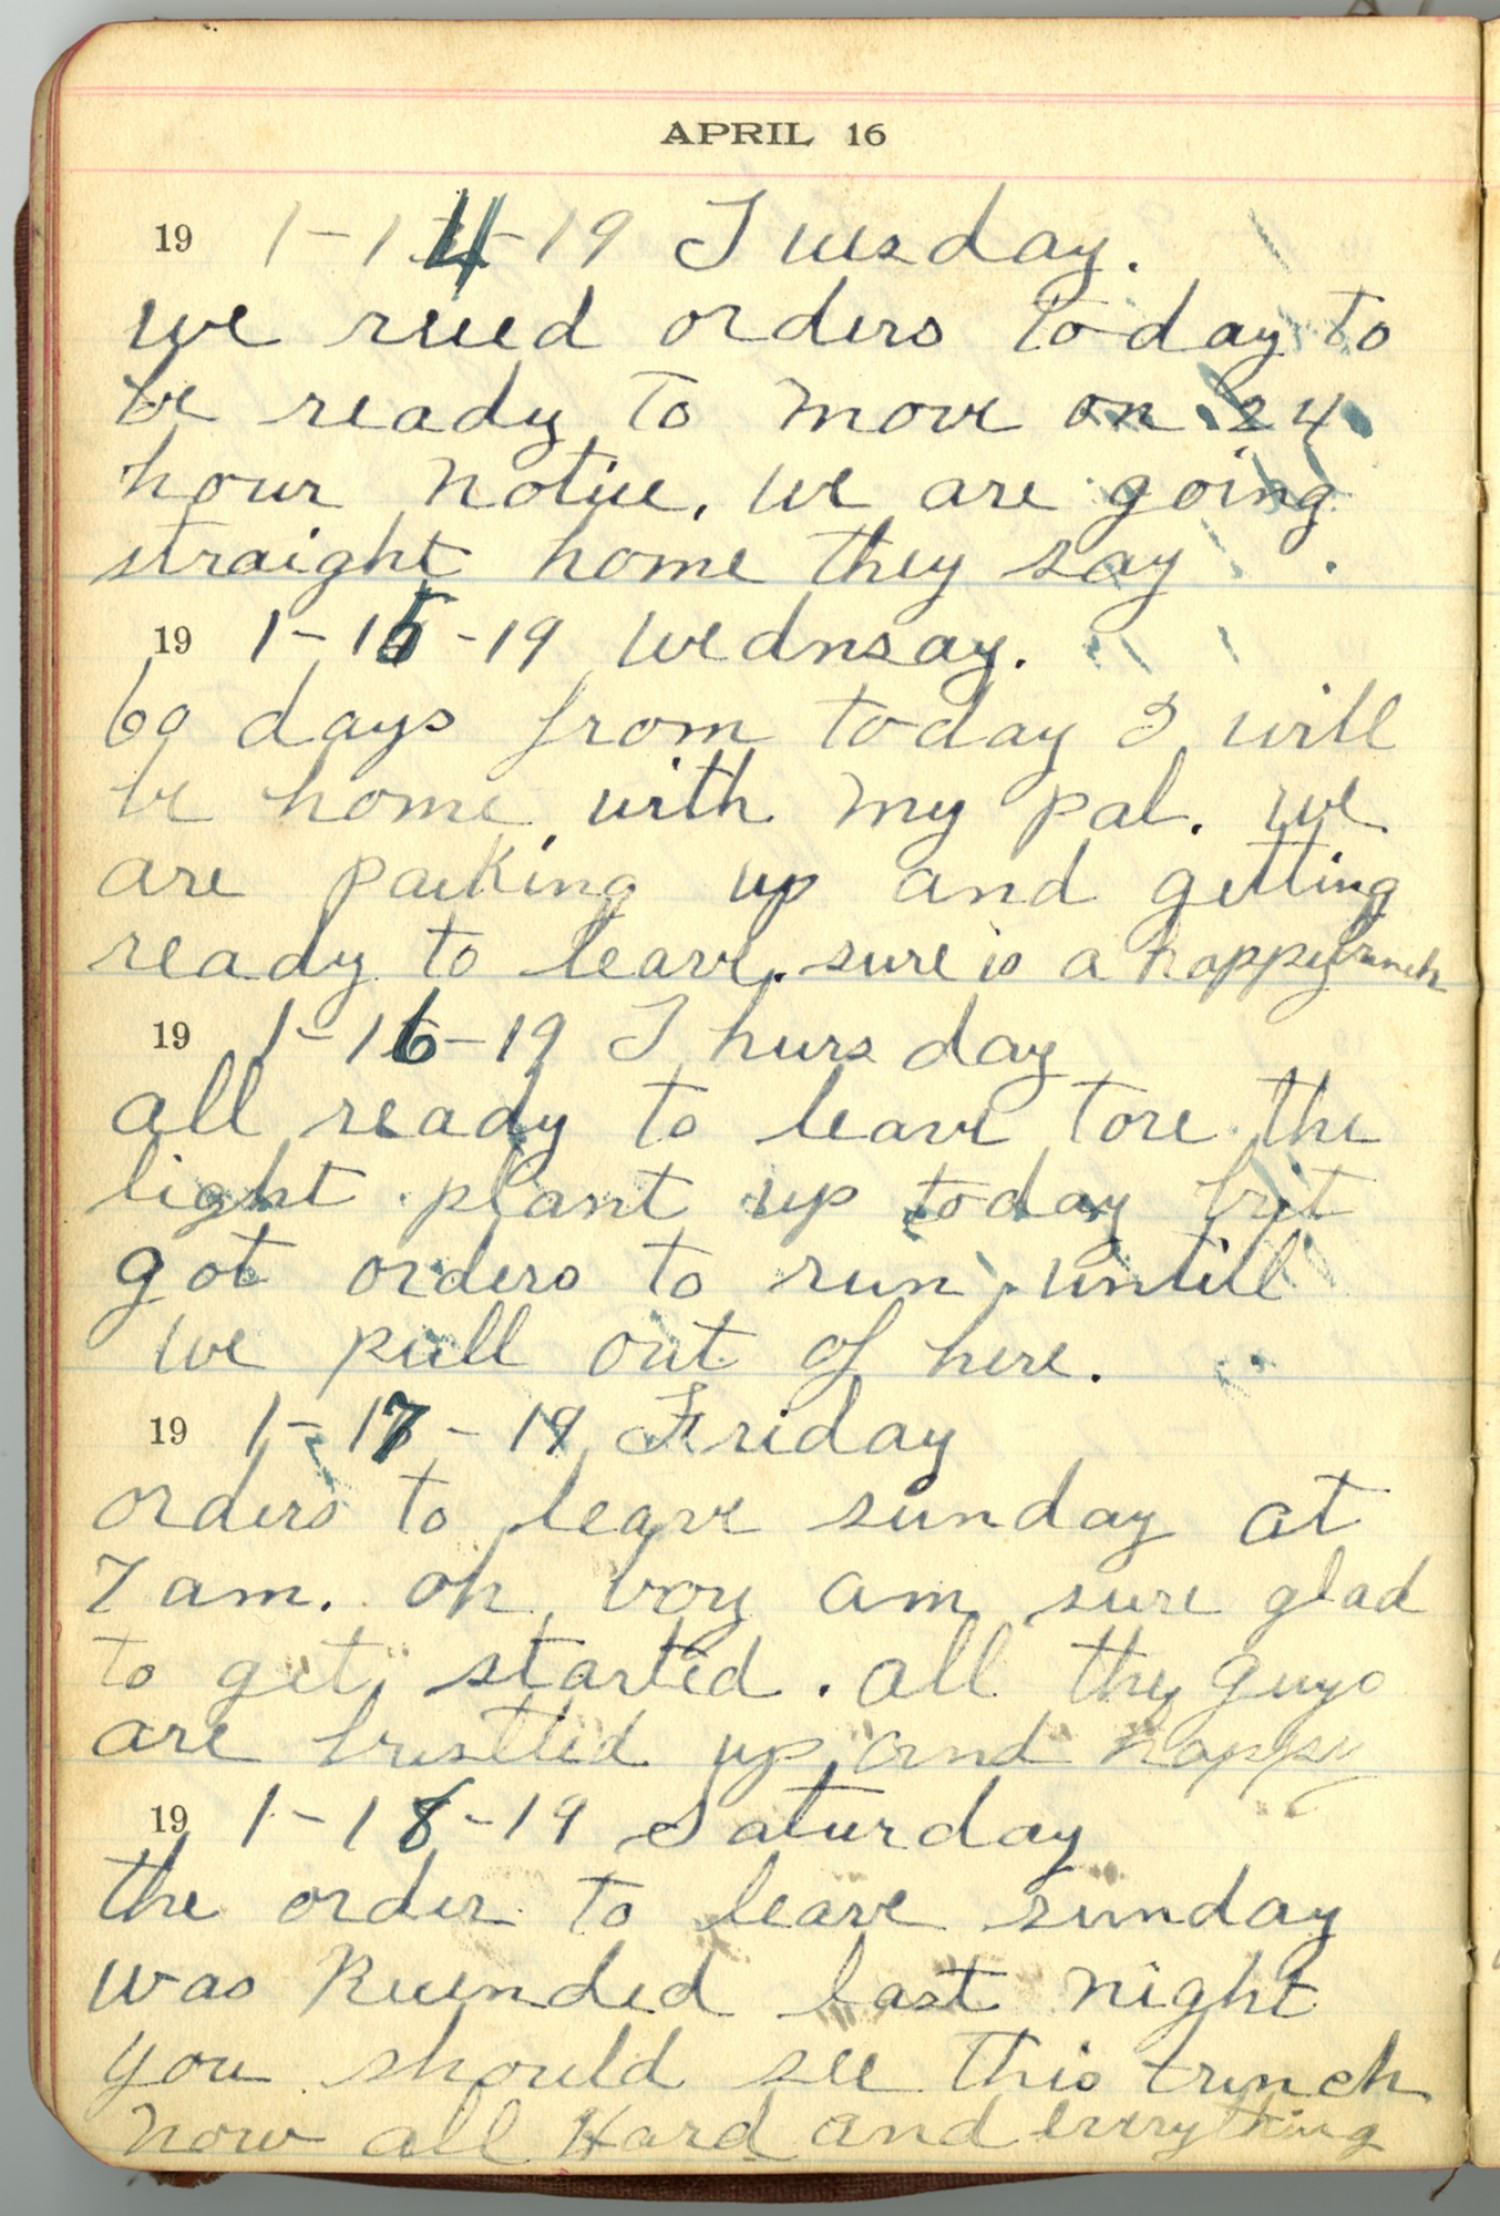 APRIL 16
19 1-14-19 Tuesday.
we riced orders today to
be ready to move on 24
hour notice. we are going
straight home they say.
19 1-15-19 Wednsay.
60 days from today I will
be home with my pal. we
are packing up and getting
ready to leave. sure is a happy bunch
19 1-16-19 Thursday
all ready to leave tore the
light plant up today but
got orders to run untill
we pull out of here.
19 1-17-19 Friday
orders to leave sunday at
7 am. oh boy am sure glad
to get started. all the guys
are up and happy
19 1-18-19 Saturday
the order to leave sunday
was last night
you should see this
now all Hard and everything